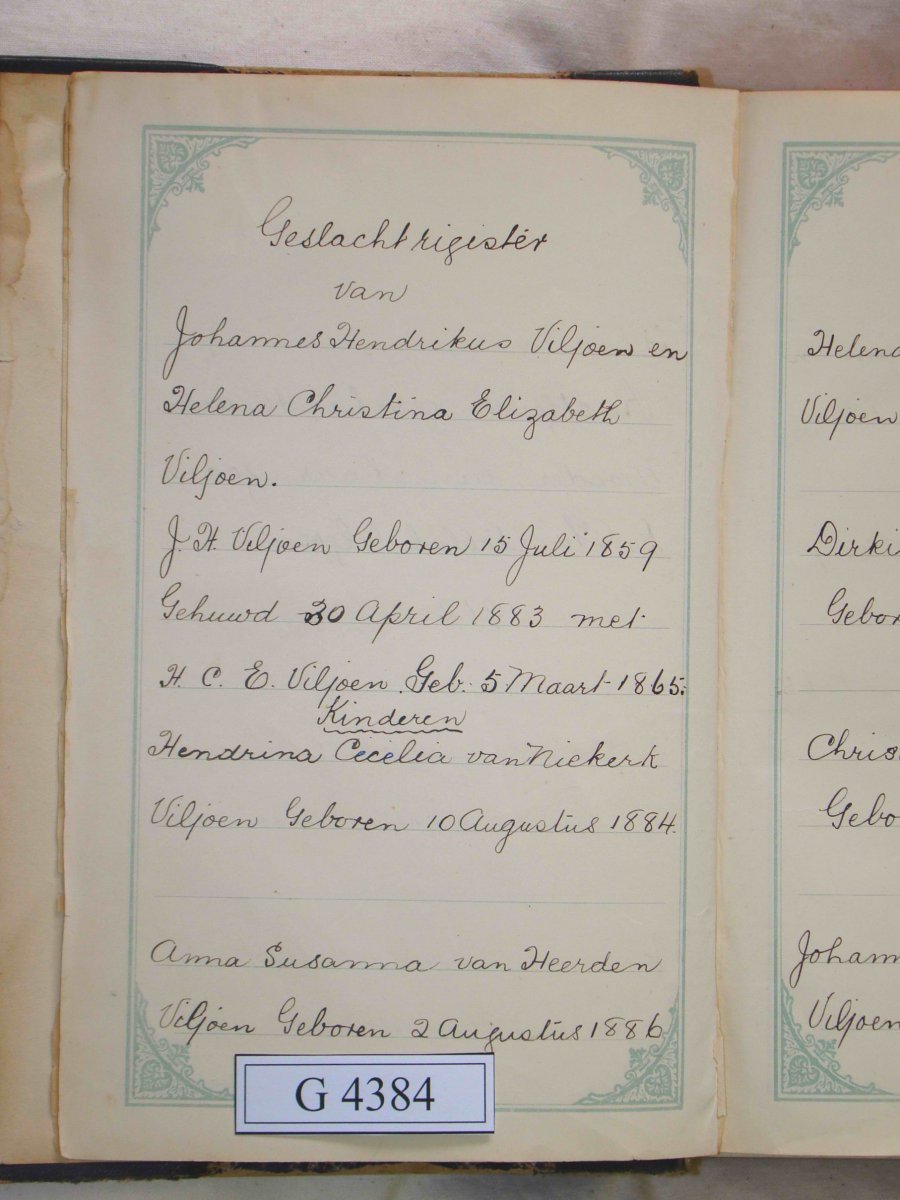 Geslachtrigister
van
Johannes Hendrikus Viljoen en
Helena Christina Elizabeth
Viljoen.
J. H. Viljoen Geboren 15 Juli 1859
Gehuwd 30 April 1883 met
H. C. E. Viljoen Geb. 5 Maart 1865.
Kinderen
Hendrina Cecelia van Niekerk
Viljoen Geboren 10 Augustus 1884.
Anna Susanna van Heerden
Viljoen Geboren 2 Augustus 1886
G 4384
Viljoen
Viljoen